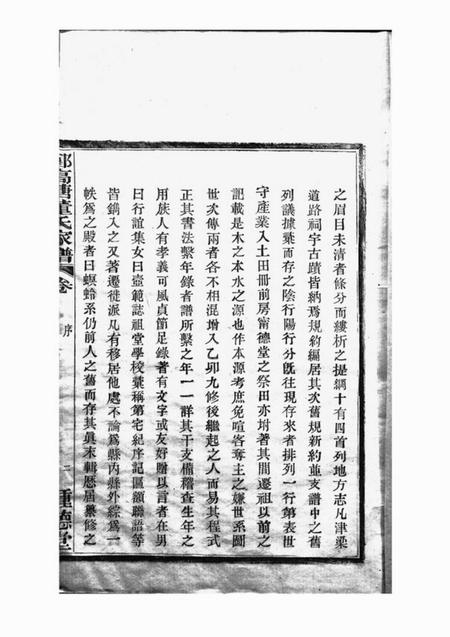 之眉目未清者條分而縷析之提綱十有四首列地方志凡津梁
道路祠宇古蹟皆納焉規約編居其次舊規新約並支譜中之舊
列議據彙而存之陰行陽行分既往現存來者排列一行第表世
守產業入土田冊前房甯德堂之祭田亦坿著其間遷祖以前之
記載是木之本水之源也作本源考庶免喧客奪主之嫌世系圖
世次傳兩者各不相混增入乙卯九修後繼起之人而易其程式
正其書法繫年錄者譜所繫之年一一詳其干支備稽查生年之
用族人有孝義可風貞節足錄者有文字或友好贈以言者在男
曰行誼集女曰壼範誌祖堂學校彙稱第宅紀序記匾額聯語等
皆鐫入之又著遷徙派凡有移居他處不論為縣內縣外綜為一
帙為之殿者曰螟蛉系仍前人之舊而存其眞末輯歷屆纂修之
高塘董氏家譜
卷
序
二
種德堂